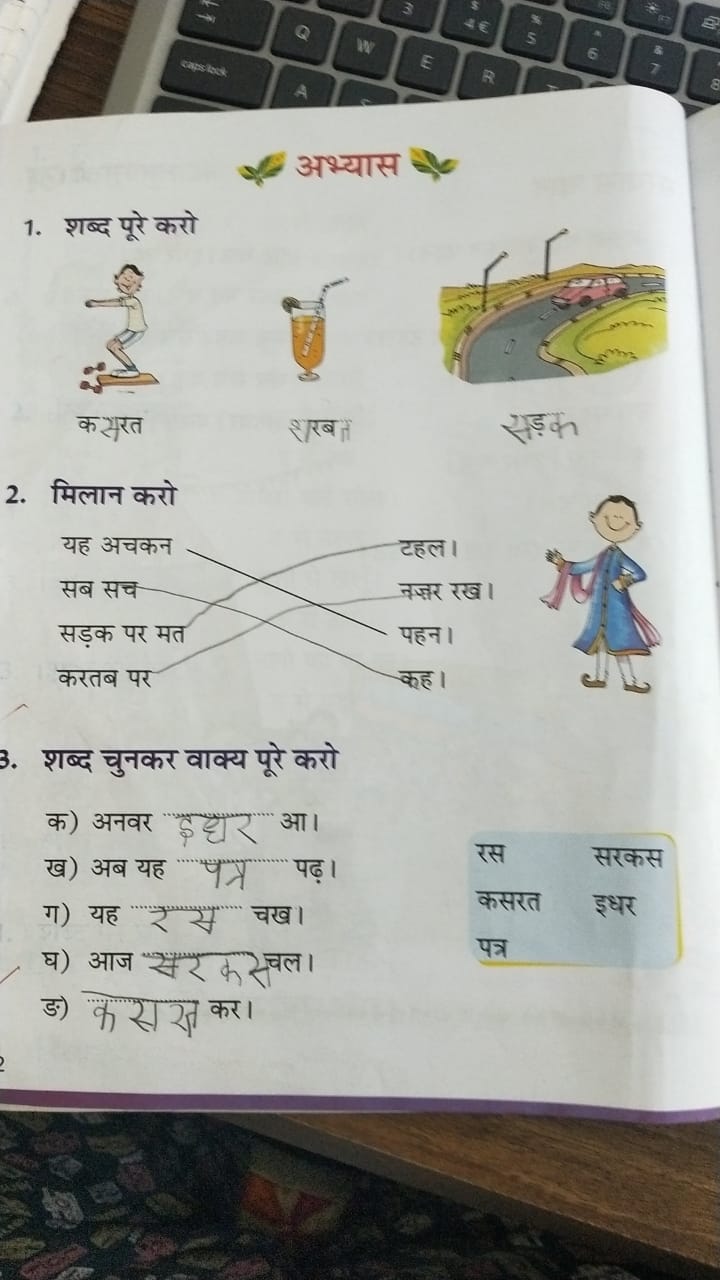 Q W E R
3 4 € 5 6 7 8
caps lock A
अभ्यास
1. शब्द पूरे करो
कसरत शरबत सड़क
2. मिलान करो
यह अचकन टहल।
सब सच नज़र रख।
सड़क पर मत पहन।
करतब पर कह।
3. शब्द चुनकर वाक्य पूरे करो
क) अनवर इधर आ।
ख) अब यह पत्र पढ़।
ग) यह रस चख।
घ) आज सरकस चल।
ङ) कसरत कर।
रस सरकस
कसरत इधर
पत्र
2